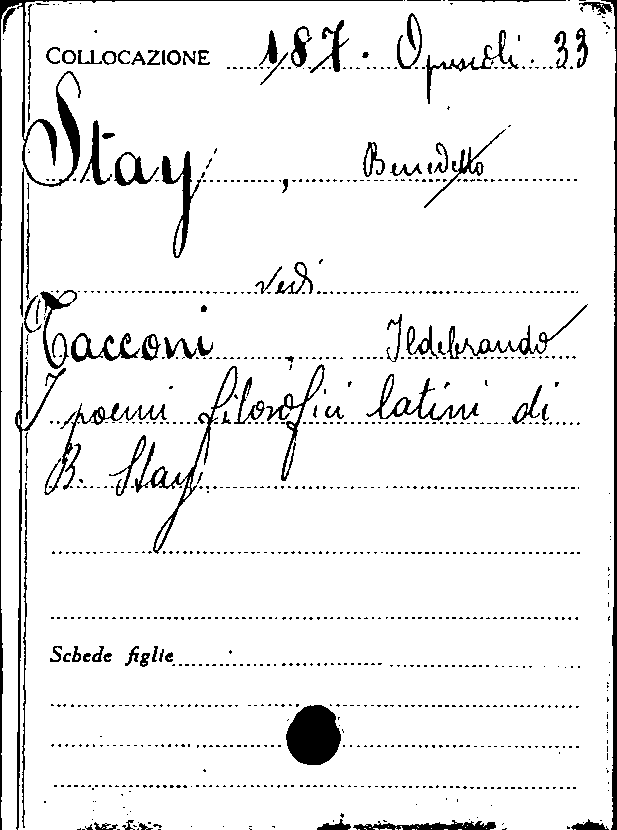 COLLOCAZIONE 187. Opuscoli. 33
Stay, Benedetto
vedi
Tacconi, Ildebrando
I poemi filosofici latini di
B. Stay.
Schede figlie